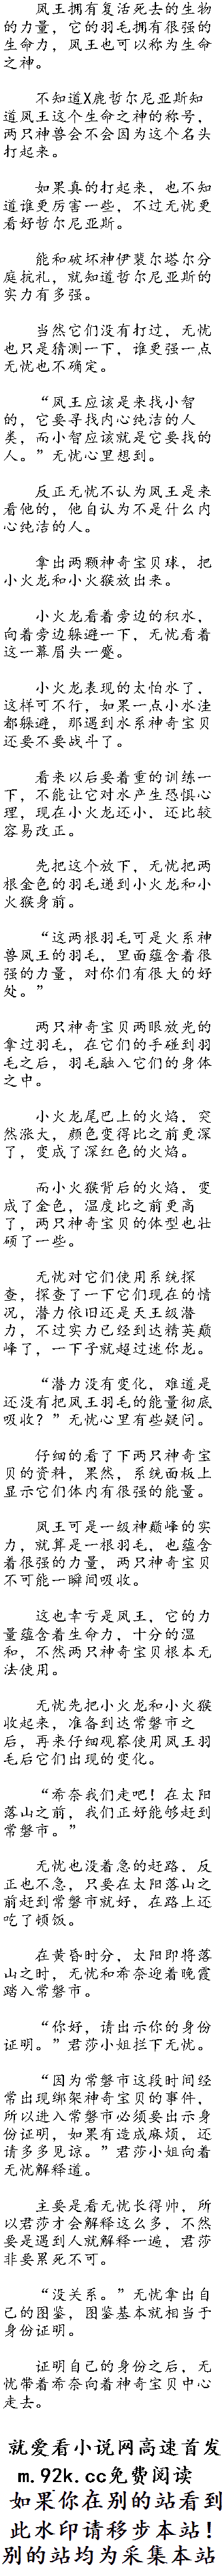 凤王拥有复活死去的生物
的力量，它的羽毛拥有很强的
生命力，凤王也可以称为生命
之神。
不知道X鹿哲尔尼亚斯知
道凤王这个生命之神的称号，
两只神兽会不会因为这个名头
打起来。
如果真的打起来，也不知
道谁更厉害一些，不过无忧更
看好哲尔尼亚斯。
能和破坏神伊裴尔塔尔分
庭抗礼，就知道哲尔尼亚斯的
实力有多强。
当然它们没有打过，无忧
也只是猜测一下，谁更强一点
无忧也不确定。
“凤王应该是来找小智
的，它要寻找内心纯洁的人
类，而小智应该就是它要找的
人。”无忧心里想到。
反正无忧不认为凤王是来
看他的，他自认为不是什么内
心纯洁的人。
拿出两颗神奇宝贝球，把
小火龙和小火猴放出来。
小火龙看着旁边的积水，
向着旁边躲避一下，无忧看着
这一幕眉头一蹙。
小火龙表现的太怕水了，
这样可不行，如果一点小水洼
都躲避，那遇到水系神奇宝贝
还要不要战斗了。
看来以后要着重的训练一
下，不能让它对水产生恐惧心
理，现在小火龙还小，还比较
容易改正。
先把这个放下，无忧把两
根金色的羽毛递到小火龙和小
火猴身前。
“这两根羽毛可是火系神
兽凤王的羽毛，里面蕴含着很
强的力量，对你们有很大的好
处。”
两只神奇宝贝两眼放光的
拿过羽毛，在它们的手碰到羽
毛之后，羽毛融入它们的身体
之中。
小火龙尾巴上的火焰，突
然涨大，颜色变得比之前更深
了，变成了深红色的火焰。
而小火猴背后的火焰，变
成了金色，温度比之前更高
了，两只神奇宝贝的体型也壮
硕了一些。
无忧对它们使用系统探
查，探查了一下它们现在的情
况，潜力依旧还是天王级潜
力，不过实力已经到达精英巅
峰了，一下子就超过迷你龙。
“潜力没有变化，难道是
还没有把凤王羽毛的能量彻底
吸收？”无忧心里有些疑问。
仔细的看了下两只神奇宝
贝的资料，果然，系统面板上
显示它们体内有很强的能量。
凤王可是一级神巅峰的实
力，就算是一根羽毛，也蕴含
着很强的力量，两只神奇宝贝
不可能一瞬间吸收。
这也幸亏是凤王，它的力
量蕴含着生命力，十分的温
和，不然两只神奇宝贝根本无
法使用。
无忧先把小火龙和小火猴
收起来，准备到达常磐市之
后，再来仔细观察使用凤王羽
毛后它们出现的变化。
“希奈我们走吧！在太阳
落山之前，我们正好能够赶到
常磐市。”
无忧也没着急的赶路，反
正也不急，只要在太阳落山之
前赶到常磐市就好，在路上还
吃了顿饭。
在黄昏时分，太阳即将落
山之时，无忧和希奈迎着晚霞
踏入常磐市。
“你好，请出示你的身份
证明。”君莎小姐拦下无忧。
“因为常磐市这段时间经
常出现绑架神奇宝贝的事件，
所以进入常磐市必须要出示身
份证明，如果有造成麻烦，还
请多多见谅。”君莎小姐向着
无忧解释道。
主要是看无忧长得帅，所
以君莎才会解释这么多，不然
要是遇到人就解释一遍，君莎
非要累死不可。
“没关系。”无忧拿出自
己的图鉴，图鉴基本就相当于
身份证明。
证明自己的身份之后，无
忧带着希奈向着神奇宝贝中心
走去。
就爱看小说网高速首发
m.92k.cc免费阅读
如果你在别的站看到
此水印请移步本站！
别的站均为采集本站